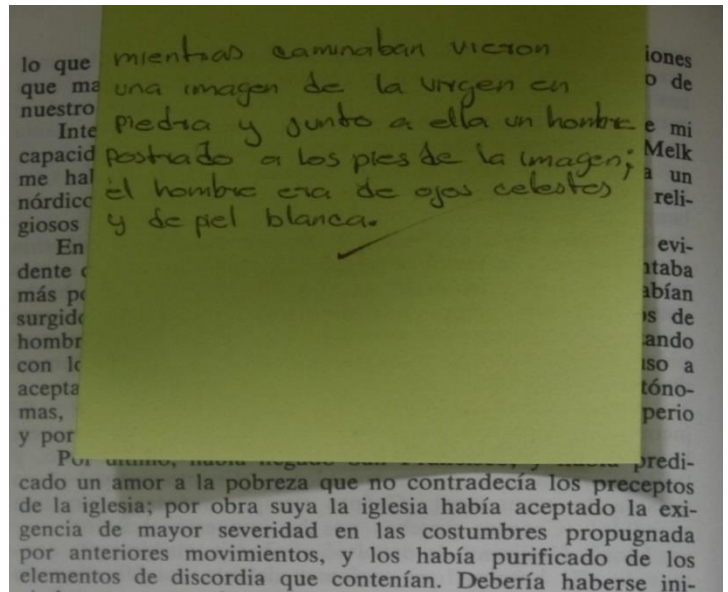 mientras caminaban vieron
una imagen de la virgen en
piedra y junto a ella un hombre
postrado a los pies de la imagen;
el hombre era de ojos celestes
y de piel blanca.
lo que iones
que ma o de
nuestro
Inte e mi
capacid Melk
me hal a un
nórdico reli-
giosos
En evi-
dente ntaba
más po abían
surgido os de
hombr ando
con lo uso a
acepta tóno-
mas, perio
y por
Por último, había llegado San Francisco, y había predi-
cado un amor a la pobreza que no contradecía los preceptos
de la iglesia; por obra suya la iglesia había aceptado la exi-
gencia de mayor severidad en las costumbres propugnada
por anteriores movimientos, y los había purificado de los
elementos de discordia que contenían. Debería haberse ini-